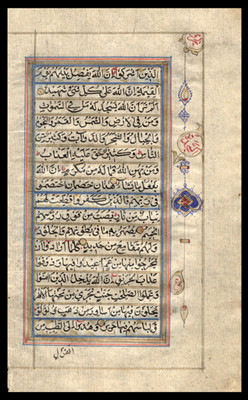 الذين اشركوا ان الله يفصل بينهم يوم
القيمة ان الله على كل شئ شهيد
الم تر ان الله يسجد له من في السموات
ومن في الارض والشمس والقمر والنجوم
والجبال والشجر والدواب وكثير من
الناس وكثير حق عليه العذاب
ومن يهن الله فما له من مكرم ان الله
يفعل ما يشاء هذان خصمان اختصموا
في ربهم فالذين كفروا قطعت لهم
ثياب من نار يصب من فوق رؤسهم
الحميم يصهر به ما في بطونهم والجلود
ولهم مقامع من حديد كلما ارادوا ان
يخرجوا منها من غم اعيدوا فيها وذوقوا
عذاب الحريق ان الله يدخل الذين امنوا
وعملوا الصلحت جنت تجري من تحتها الانهر
يحلون فيها من اساور من ذهب ولؤلؤا
ولباسهم فيها حرير وهدوا الى الطيب من
القول